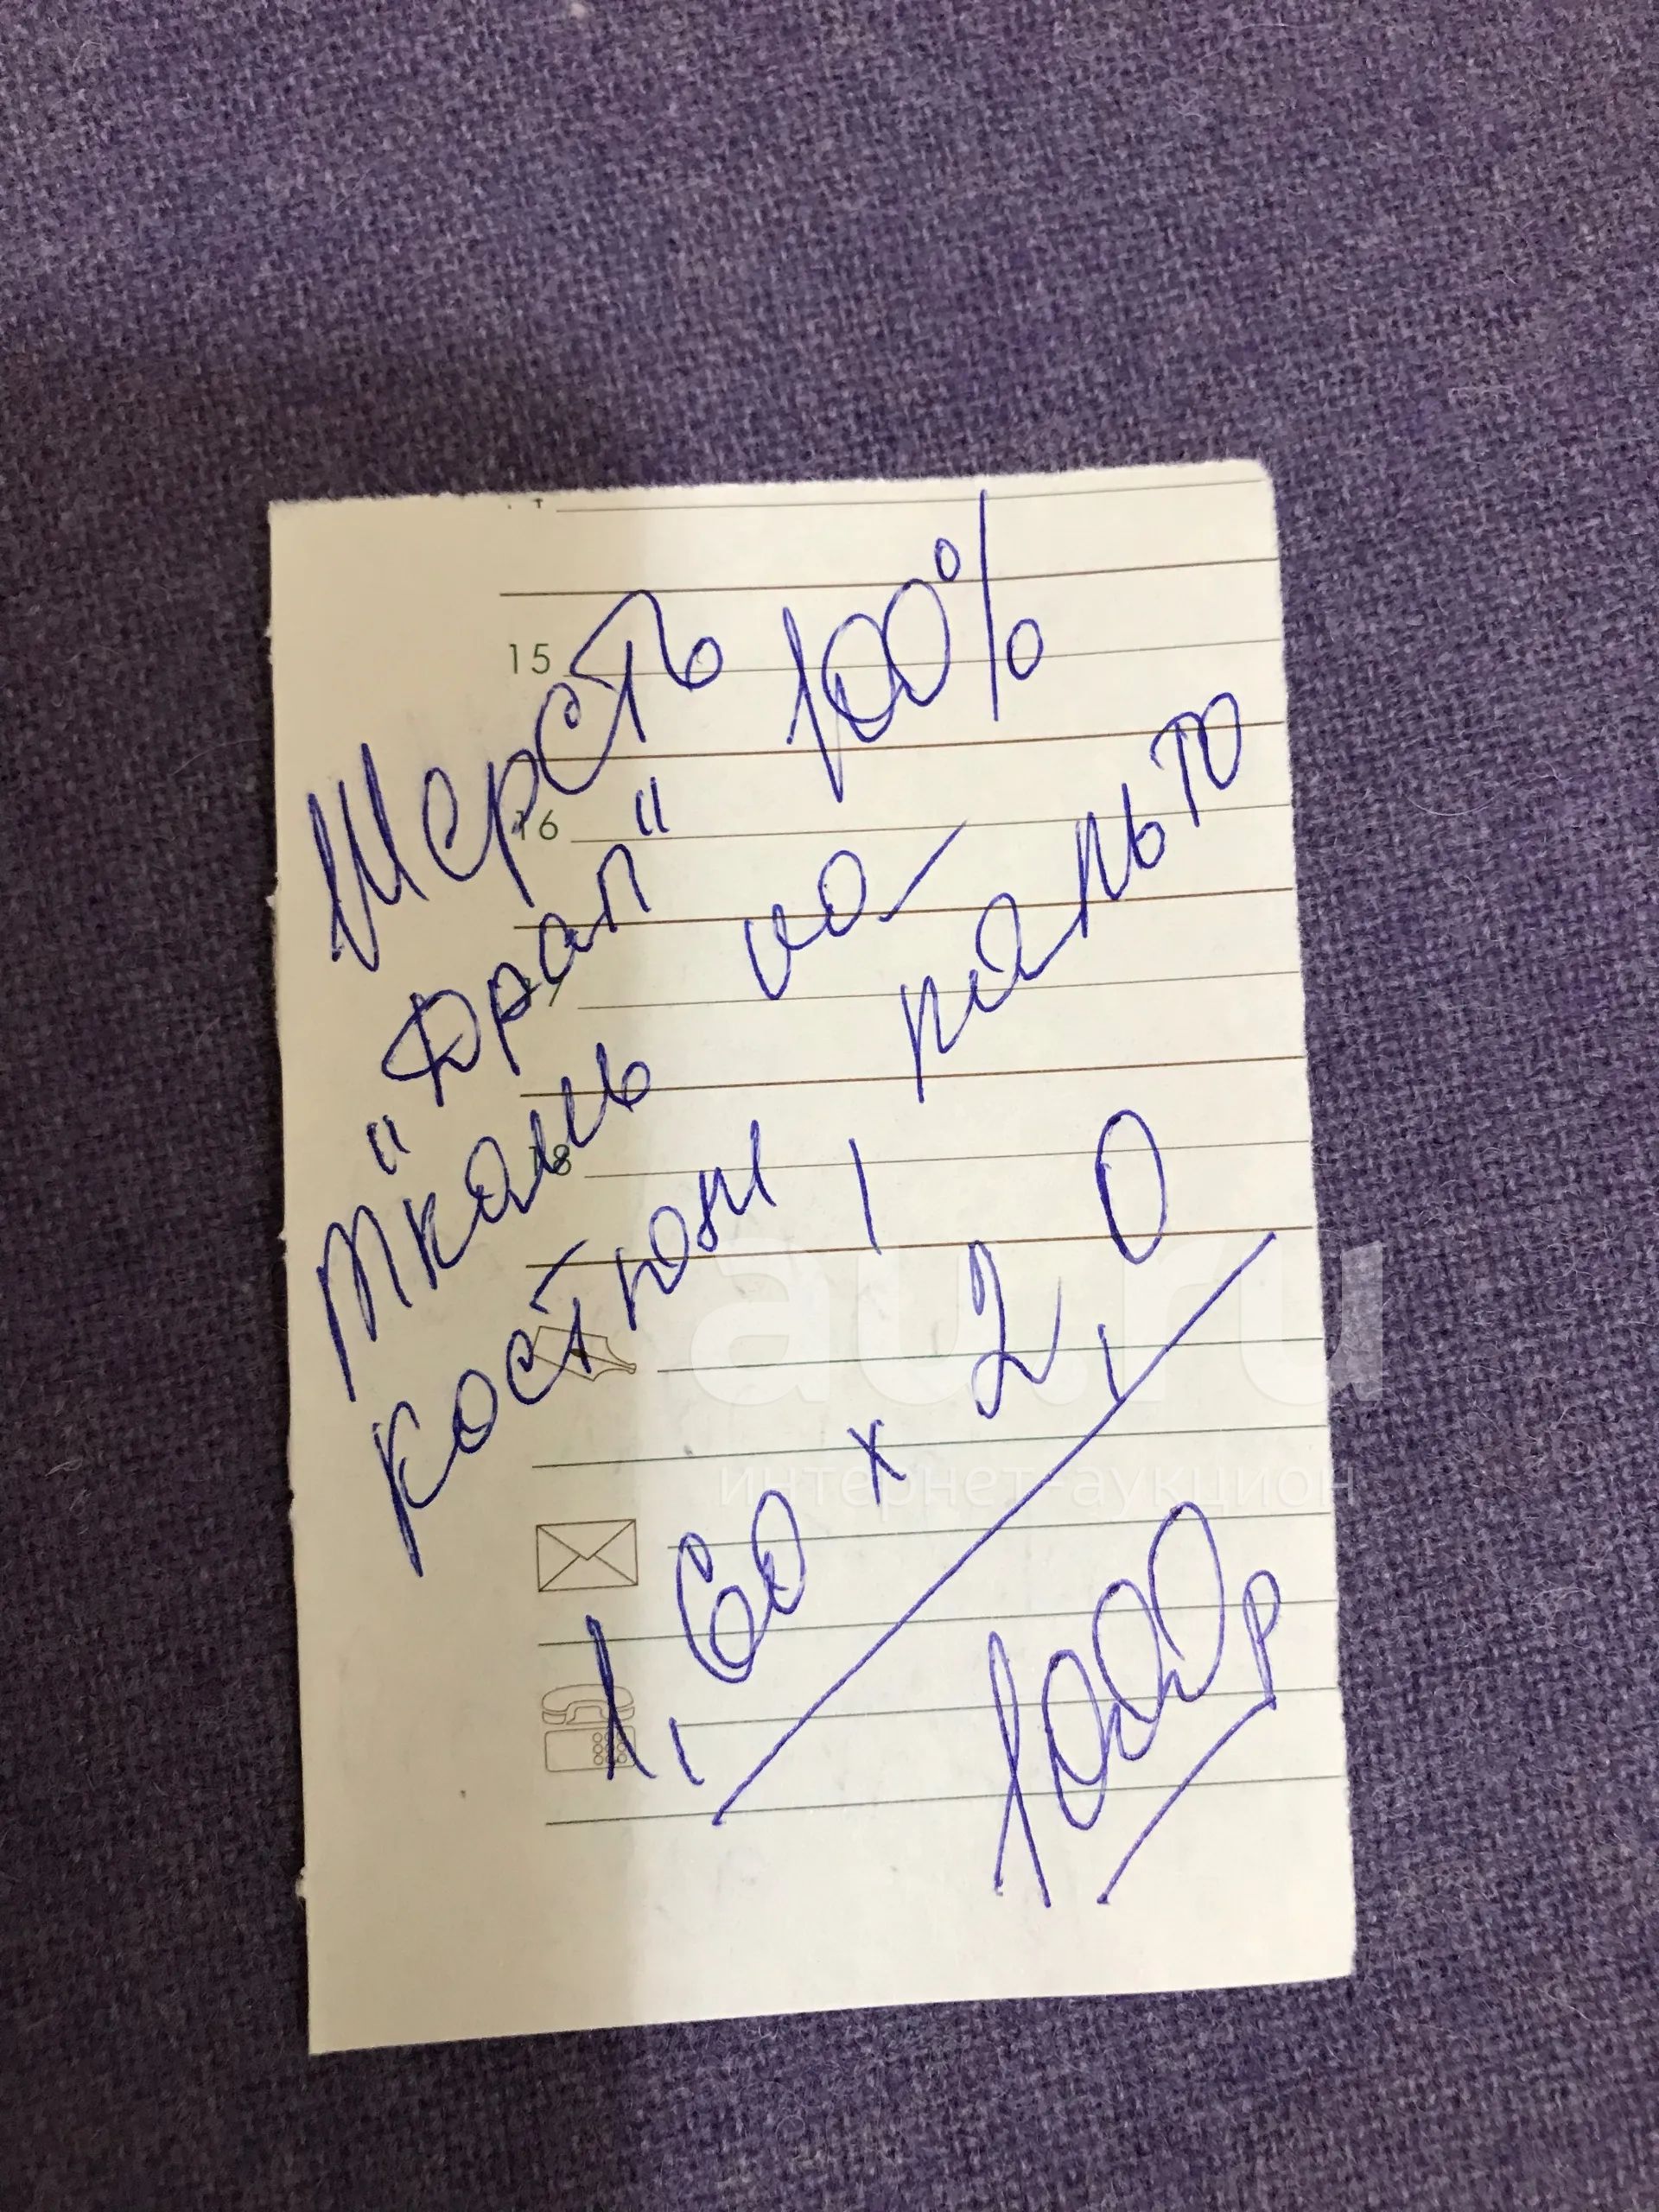 Шерсть 100%
"Драп"
ткань на
костюм / пальто
1,60 x 2,0
1000р
15
16
18
au.ru
интернет-аукцион